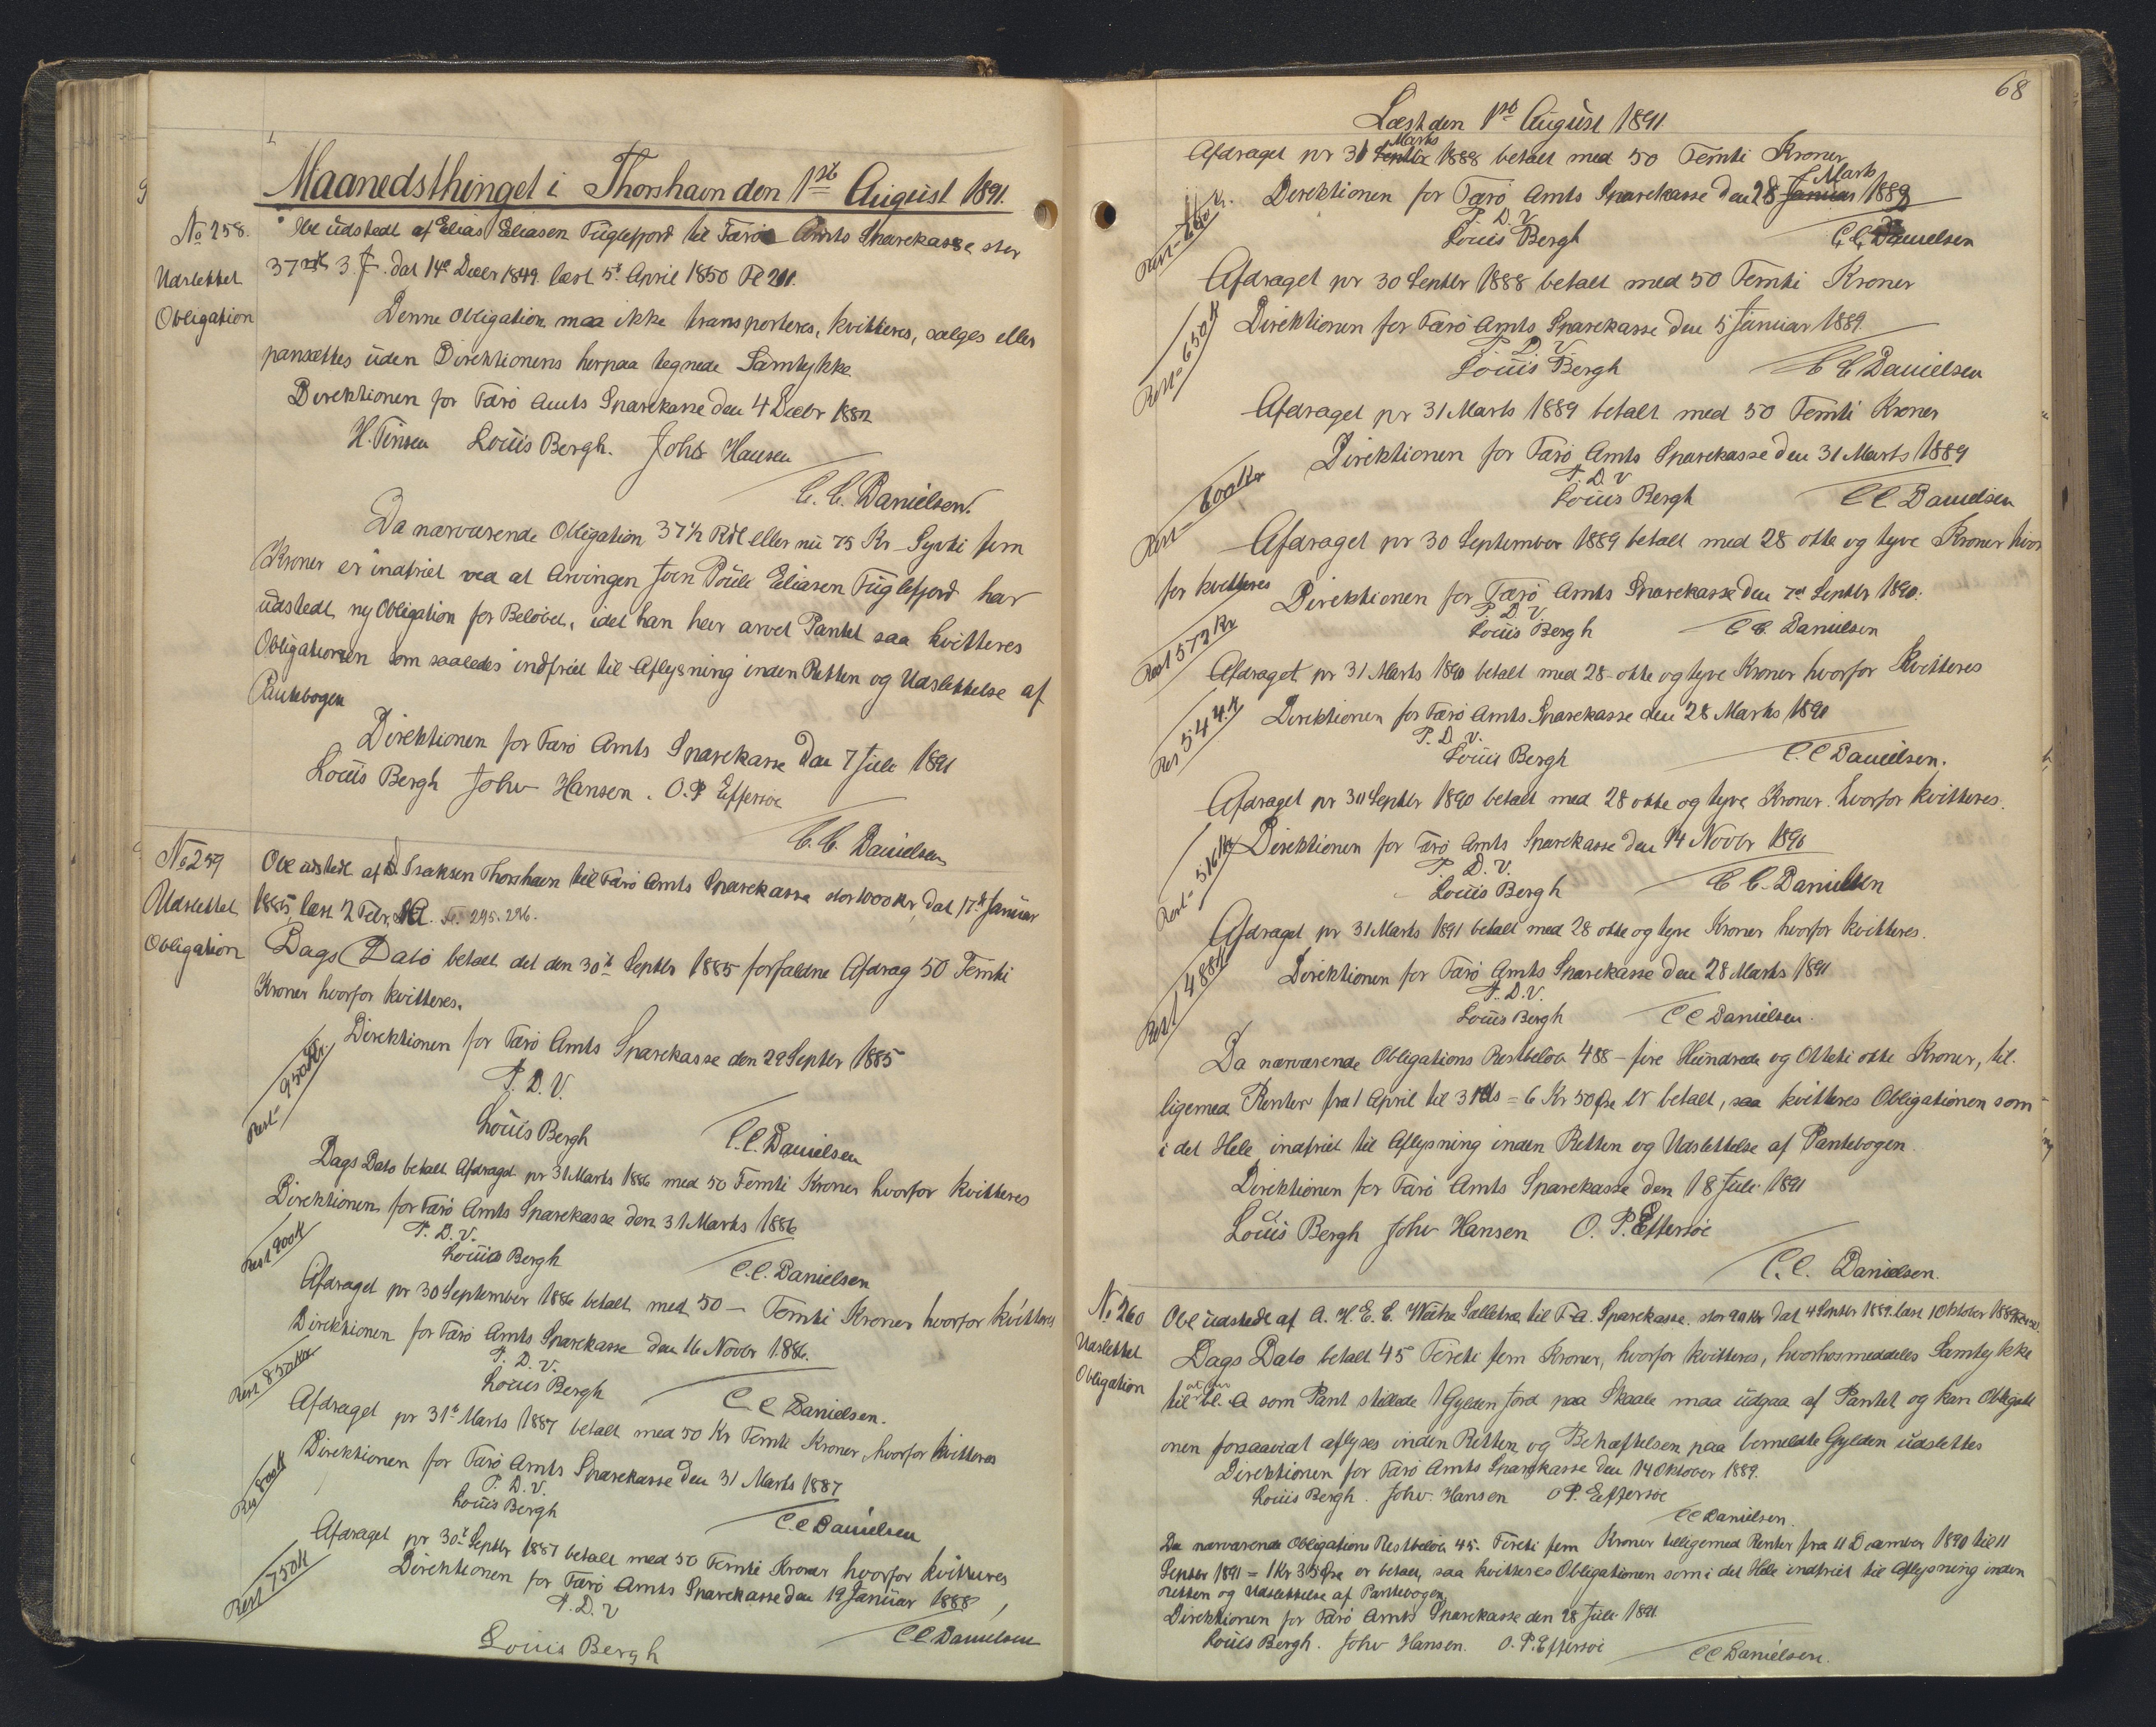 Maanedsthinget i Thorshavn den 1ste August 1891.
No 258.
Udslettet
Obligation
Obl udstedt af Elias Eliasen Fuglefjord til Færö Amts Sparekasse stor
37 3 dat 14de Decbr 1849. læst 5te April 1850 Fol 201.
Denne Obligation maa ikke transporteres, kvitteres, sælges eller
pansættes uden Direktionens herpaa tegnede Samtykke
Direktionen for Færö Amts Sparekasse den 4 Decbr 1882
H. Finsen Louis Bergh. Johs Hansen
C. C. Danielsen.
Da nærværende Obligation 37½ Rdl eller nu 75 Kr Syvti fem
Kroner er indfriet ved at Arvingen Joen Poule Eliasen Fuglefjord har
udstedt ny Obligation for Beløbet, idet han har arvet Pantet saa kvitteres
Obligationen som saaledes indfriet til Aflysning inden Retten og Udslettelse af
Pantebogen
Direktionen for Færö Amts Sparekasse den 7 Juli 1891
Louis Bergh Johs Hansen. O. P. Effersöe
C. C. Danielsen
No 259
Udslettet
Obligation
Obl udstedt af D. Isaksen Thorshavn til Færö Amts Sparekasse stor 1000 Kr, dat 17de Januar
1885, læst 2 Febr. 295. 296.
Dags Dato betalt det den 30te Septbr 1885 forfaldne Afdrag 50 Femti
Kroner hvorfor kvitteres.
Rest- 950 Kr.
Direktionen for Færö Amts Sparekasse den 29 Septbr 1885
P. D. V.
Louis Bergh
C. C. Danielsen
Dags Dato betalt Afdraget pr 31 Marts 1886 med 50 Femti Kroner hvorfor kvitteres
Direktionen for Færö Amts Sparekasse den 31 Marts 1886
Rest 900 K
P. D. V.
Louis Bergh
C. C. Danielsen
Afdraget pr 30 September 1886 betalt med 50 – Femti Kroner hvorfor kvitteres
Direktionen for Færö Amts Sparekasse den 16 Novbr 1886.
Rest 850 Kr
P. D. V.
Louis Bergh
C. C. Danielsen.
Afdraget pr 31te Marts 1887 betalt med 50 Kr Femti Kroner, hvorfor kvitteres
Direktionen for Færö Amts Sparekasse den 31 Marts 1887
Res 800 K
P. D. V.
Louis Bergh
C. C. Danielsen
Afdraget pr 30te Septbr 1887 betalt med 50 Femti Kroner hvorfor kvitteres
Direktionen for Færö Amts Sparekasse den 19 Januar 1888
Rest 750 K
P. D. V
Louis Bergh
C C Danielsen
68
Læst den 1ste August 1891
Afdraget pr 31 Septbr Marts 1888 betalt med 50 Femti Kroner
Direktionen for Færö Amts Sparekasse den 28 Januar Marts 1889
P. D. V.
Louis Bergh
C. C. Danielsen
Afdraget pr 30 Septbr 1888 betalt med 50 Femti Kroner
Rest- 650 K
Direktionen for Færö Amts Sparekasse den 5 Januar 1889.
P D V
Louis Bergh
C C Danielsen
Afdraget pr 31 Marts 1889 betalt med 50 Femti Kroner
Direktionen for Færö Amts Sparekasse den 31 Marts 1889
Rest- 600 Kr
P. D. V
Louis Bergh
C C Danielsen
Afdraget pr 30 September 1889 betalt med 28 otte og tyve Kroner hvor
for kvitteres
Direktionen for Færö Amts Sparekasse den 7de Septbr 1890.
P D V.
Louis Bergh
C C. Danielsen
Rest 572 Kr
Afdraget pr 31 Marts 1890 betalt med 28 - otte og tyve Kroner hvorfor kvitteres
Direktionen for Færö Amts Sparekasse den 28 Marts 1890
Res 544. K
P. D. V.
Louis Bergh
C. C Danielsen.
Afdraget pr 30 Septbr 1890 betalt med 28 otte og tyve Kroner. hvorfor kvitteres.
Direktionen for Færö Amts Sparekasse den 14 Novbr 1890
Rest- 516 Kr
P. D. V.
Louis Bergh
C C. Danielsen
Afdraget pr 31 Marts 1891 betalt med 28 otte og tyve Kroner hvorfor kvitteres.
Direktionen for Færö Amts Sparekasse den 28 Marts 1891
Rest 488 K
P. D. V.
Louis Bergh
C C Danielsen.
Da nærværende Obligations Restbeløb 488 – fire Hundrede og Otteti otte Kroner, til-
ligemed Renter fra 1 April til = 6 Kr 50 Øre er betalt, saa kvitteres Obligationen som
i det Hele indfriet til Aflysning inden Retten og Udslettelse af Pantebogen.
Direktionen for Færö Amts Sparekasse den 18 Juli 1891
Louis Bergh Johs Hansen O. P. Effersöe
C. C. Danielsen.
No 260
Udslettet
Obligation
Obl udstedt af A. H. E. C. til F. A. Sparekasse. stor 90 Kr dat 4 Septbr 1889. læst 1 Oktober 1889
Dags Dato betalt 45 Fireti fem Kroner, hvorfor kvitteres, hvorhos meddeles Samtykke
til at den bl. A som Pant stillede 1 Gylden Jord paa Skaale maa udgaa af Pantet og kan Obligati
onen forsaavidt aflyses inden Retten og Behæftelsen paa bemeldte Gylden udslettes
Direktionen for Færö Amts Sparekasse den 14 Oktober 1889.
Louis Bergh. Johs. Hansen O P. Effersöe
C C Danielsen.
Da nærværende Obligations Restbeløb 45. Fireti fem Kroner tilligemed Renter fra 11 December 1890 til 11
Septbr 1891 = 1 Kr 35 Øre er betalt, saa kvitteres Obligationen som i det Hele indfriet til Aflysning inden
Retten og Udslettelse af Pantebogen
Direktionen for Færö Amts Sparekasse den 28 Juli 1891
Louis Bergh. Johs Hansen. O. P. Effersöe
C C Danielsen.